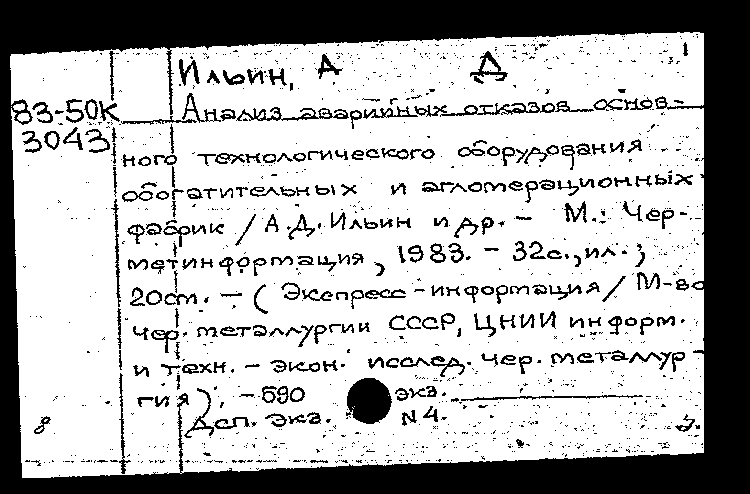 1
Ильин, А Д
83-50К
3043
Анализ аварийных отказов основ-
ного технологического оборудования
обогатительных и агломерационных
фабрик / А.Д. Ильин и др. – М.: Чер-
метинформация, 1983. – 32с., ил.;
20см. – (Экспресс-информация / М-во
чер. металлургии СССР, ЦНИИ информ.
и техн.-экон. исслед. чер. металлур-
гия). – 590 экз.
Дсп. экз. N4.
8